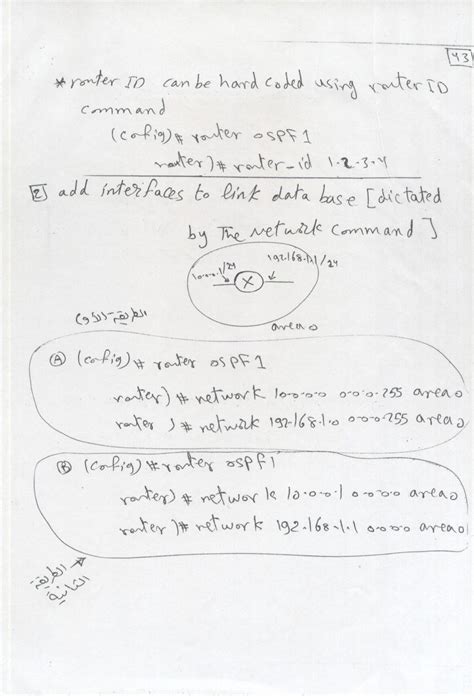 43
* router ID can be hard coded using router ID
command
(config)# router ospf 1
router)# router-id 1.2.3.4
[2] add interfaces to link data base [dictated
by The Network Command]
10.0.0.1/24
192.168.1.1/24
X
area 0
الطريقة الأولى
(A) (config)# router ospf 1
router)# network 10.0.0.0 0.0.0.255 area 0
router)# network 192.168.1.0 0.0.0.255 area 0
(B) (config)# router ospf 1
router)# network 10.0.0.1 0.0.0.0 area 0
router)# network 192.168.1.1 0.0.0.0 area 0
الطريقة
الثانية